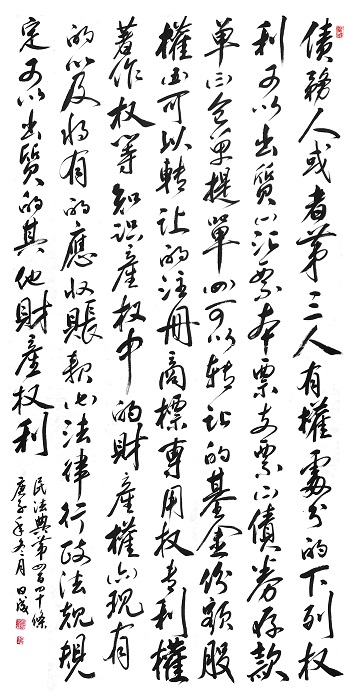 債務人或者第三人有權處分的下列权
利可以出质一汇票本票支票二債券存款
单三仓单提單四可以转让的基金份额股
權五可以轉让的注册商標專用权专利權
著作权等知识產权中的財產權六现有
的以及将有的應收賬款七法律行政法规規
定可以出质的其他財產权利
民法典第四百四十條
庚子年冬月日成